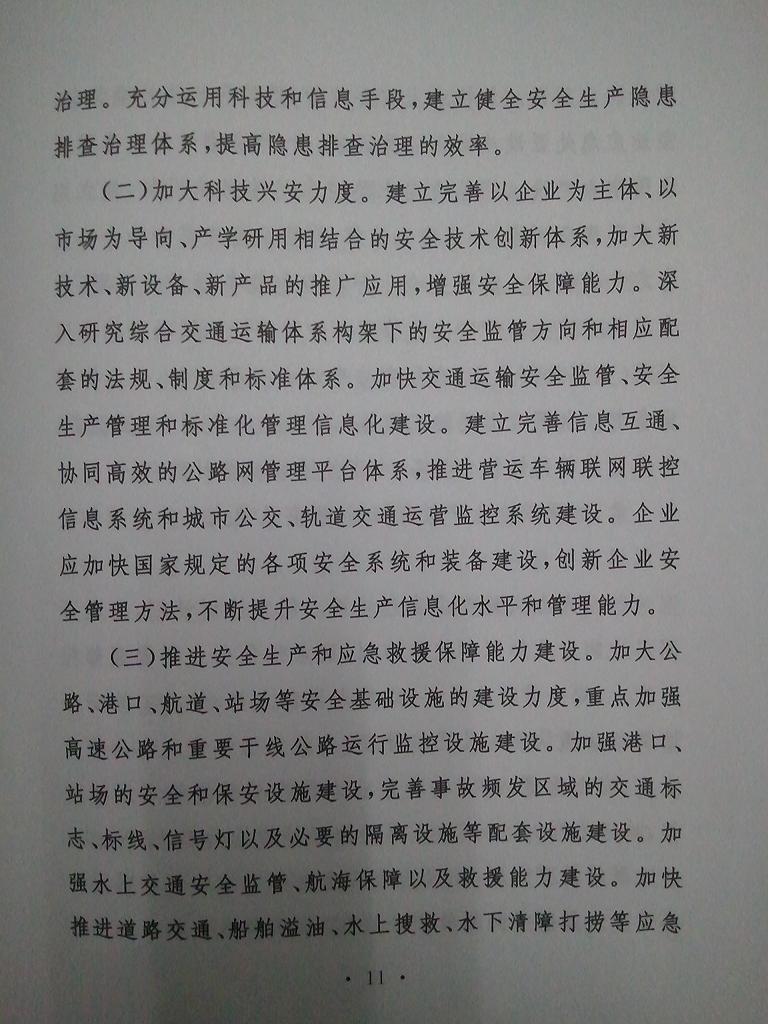 治理。充分运用科技和信息手段,建立健全安全生产隐患
排查治理体系,提高隐患排查治理的效率。
(二)加大科技兴安力度。建立完善以企业为主体、以
市场为导向、产学研用相结合的安全技术创新体系,加大新
技术、新设备、新产品的推广应用,增强安全保障能力。深
入研究综合交通运输体系构架下的安全监管方向和相应配
套的法规、制度和标准体系。加快交通运输安全监管、安全
生产管理和标准化管理信息化建设。建立完善信息互通、
协同高效的公路网管理平台体系,推进营运车辆联网联控
信息系统和城市公交、轨道交通运营监控系统建设。企业
应加快国家规定的各项安全系统和装备建设,创新企业安
全管理方法,不断提升安全生产信息化水平和管理能力。
(三)推进安全生产和应急救援保障能力建设。加大公
路、港口、航道、站场等安全基础设施的建设力度,重点加强
高速公路和重要干线公路运行监控设施建设。加强港口、
站场的安全和保安设施建设,完善事故频发区域的交通标
志、标线、信号灯以及必要的隔离设施等配套设施建设。加
强水上交通安全监管、航海保障以及救援能力建设。加快
推进道路交通、船舶溢油、水上搜救、水下清障打捞等应急
· 11 ·